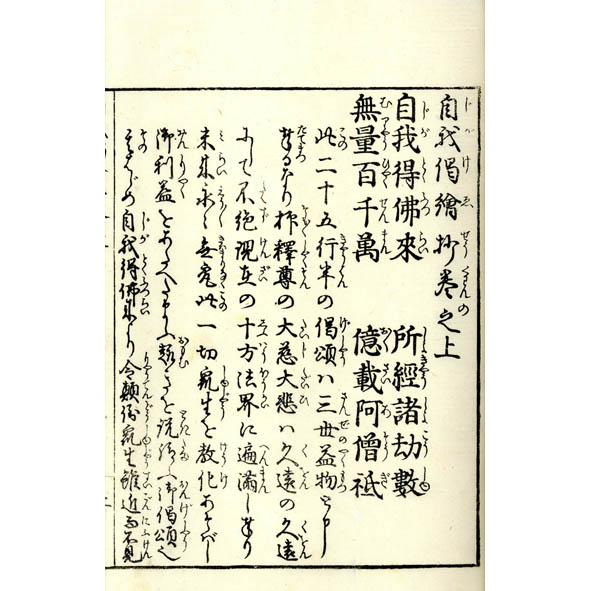 自我偈繪抄巻之上
自我得佛來 所經諸劫數
無量百千萬 億載阿僧祇
此二十五行半の偈頌ハ三世益物と申し
奉るなり 抑釋尊の大慈大悲ハ久遠の久遠
にして不絶現在の十方法界に遍滿し奉り
未来永々 此一切衆生を教化あそばし
御利益を 説給ふ御偈頌也
自我得佛來より令顛倒衆生雖近而不見